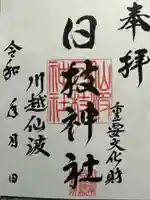 奉拝
重要文化財
日枝神社
川越仙波
令和 年 月 日